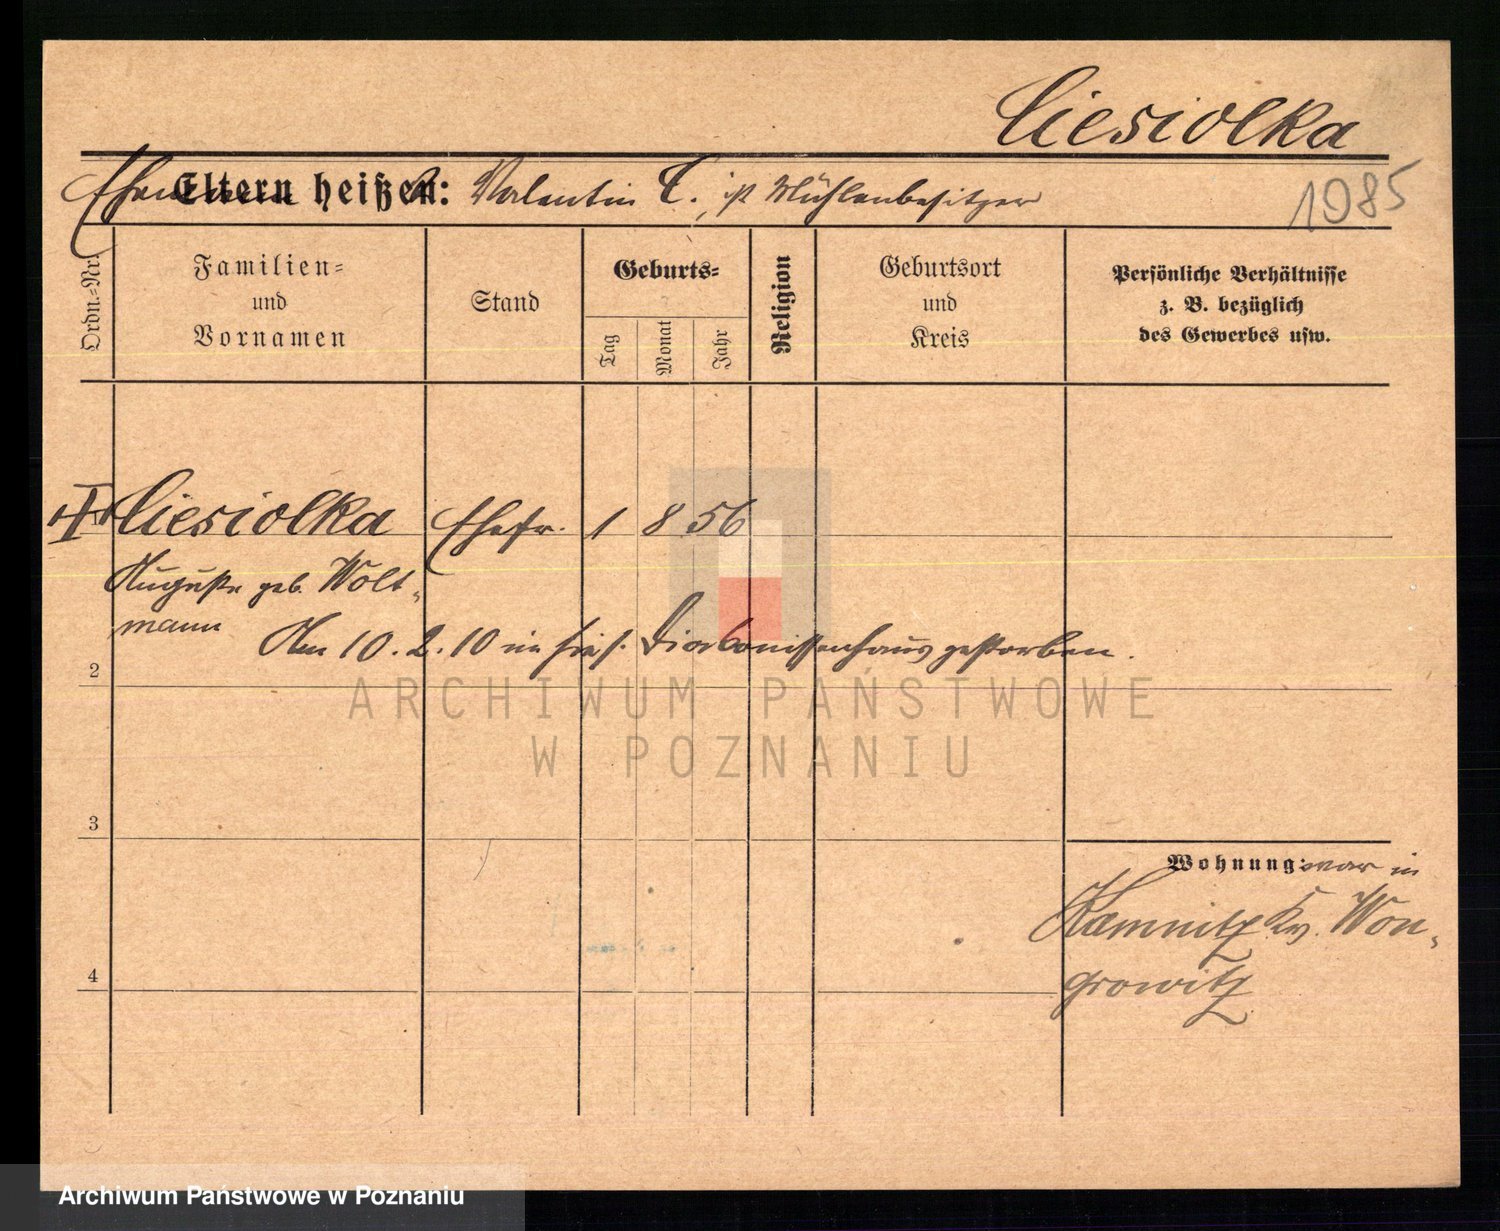 Ciesiolka
Ehemann Eltern heißen: Valentin C., ist Mühlenbesitzer
1985
Ordn.-Nr.
Familien-
und
Vornamen
Stand
Geburts-
Tag
Monat
Jahr
Religion
Geburtsort
und
Kreis
Persönliche Verhältnisse
z. B. bezüglich
des Gewerbes usw.
Ciesiolka Ehefr. 1 8 56
Auguste geb. Wolt-
mann
Am 10.2.10 im hies. Diakonissenhaus gestorben.
2
ARCHIWUM PAŃSTWOWE
W POZNANIU
3
Wohnung: war in
Kamnitz Kr. Won-
growitz
4
Archiwum Państwowe w Poznaniu